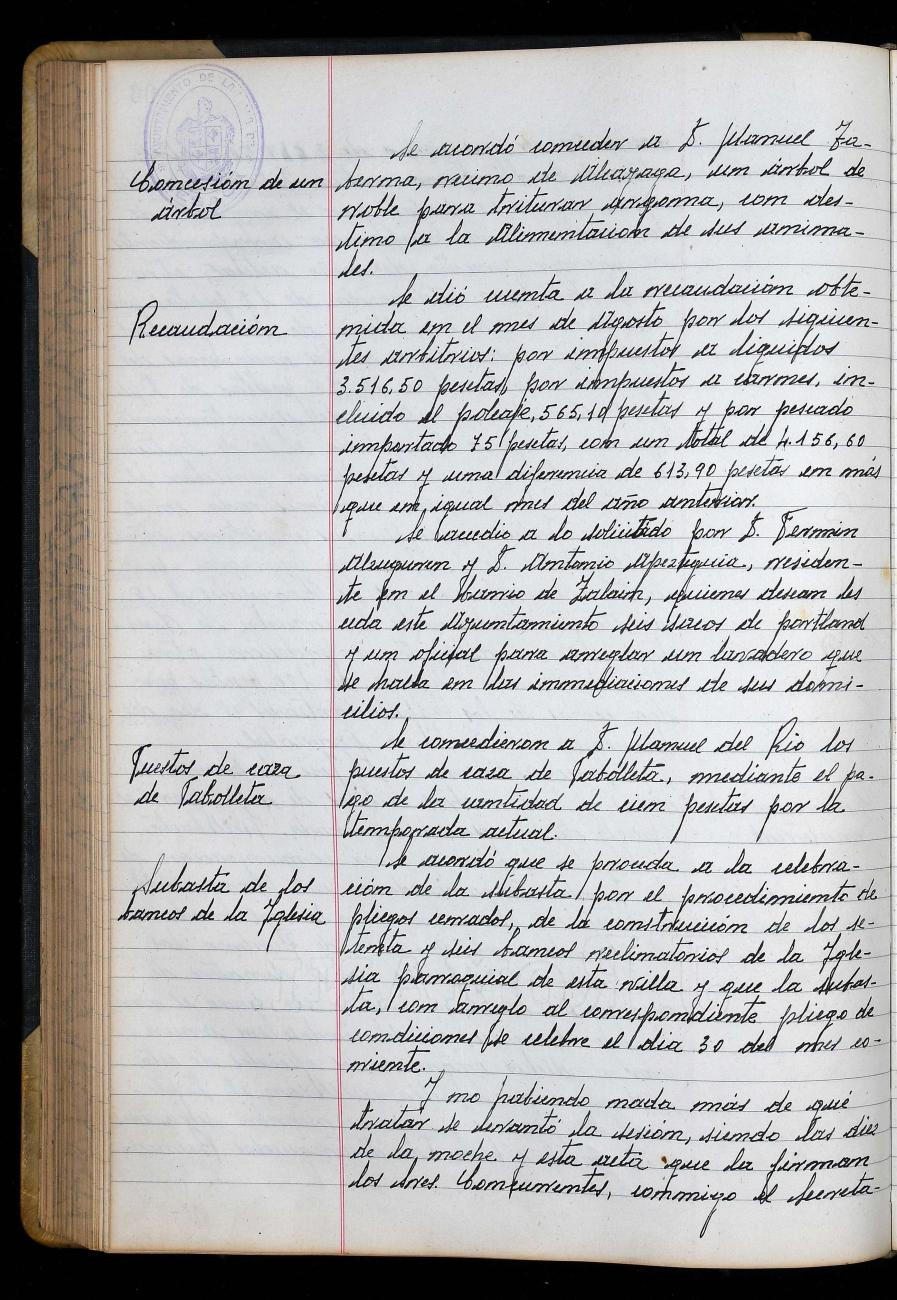 AYUNTAMIENTO DE LA
Concesión de un
árbol
Se acordó conceder a D. Manuel Ta-
berna, vecino de Alcayaga, un árbol de
roble para triturar argoma, con des-
tino a la Alimentación de sus anima-
les.
Recaudación
Se dió cuenta a la recaudación obte-
nida en el mes de Agosto por los siguien-
tes arbitrios: por impuestos a liquidos
3.516,50 pesetas, por impuestos a carnes, in-
cluido el poleaje, 565,10 pesetas y por pescado
importado 75 pesetas, con un total de 4.156,60
pesetas y una diferencia de 613,90 pesetas en más
que en igual mes del año anterior.
Se accedio a lo solicitado por D. Fermin
Alzuguren y D. Antonio Apezteguia, residen-
te en el barrio de Zalain, quienes desean les
ceda este Ayuntamiento seis sacos de portland
y un oficial para arreglar un lavadero que
se halla en las inmediaciones de sus domi-
cilios.
Puestos de caza
de Tabolleta
Se concedieron a D. Manuel del Rio los
puestos de caza de Tabolleta, mediante el pa-
go de la cantidad de cien pesetas por la
temporada actual.
Subasta de los
bancos de la Iglesia
Se acordó que se proceda a la celebra-
ción de la subasta por el procedimiento de
pliegos cerrados, de la construcción de los se-
tenta y seis bancos reclinatorios de la Igle-
sia parroquial de esta villa y que la subas-
ta, con arreglo al correspondiente pliego de
condiciones se celebre el dia 30 del mes co-
rriente.
Y no habiendo nada más de qué
tratar se levantó la sesión, siendo las diez
de la noche y esta acta que la firman
los Sres. Concurrentes, conmigo el Secreta-